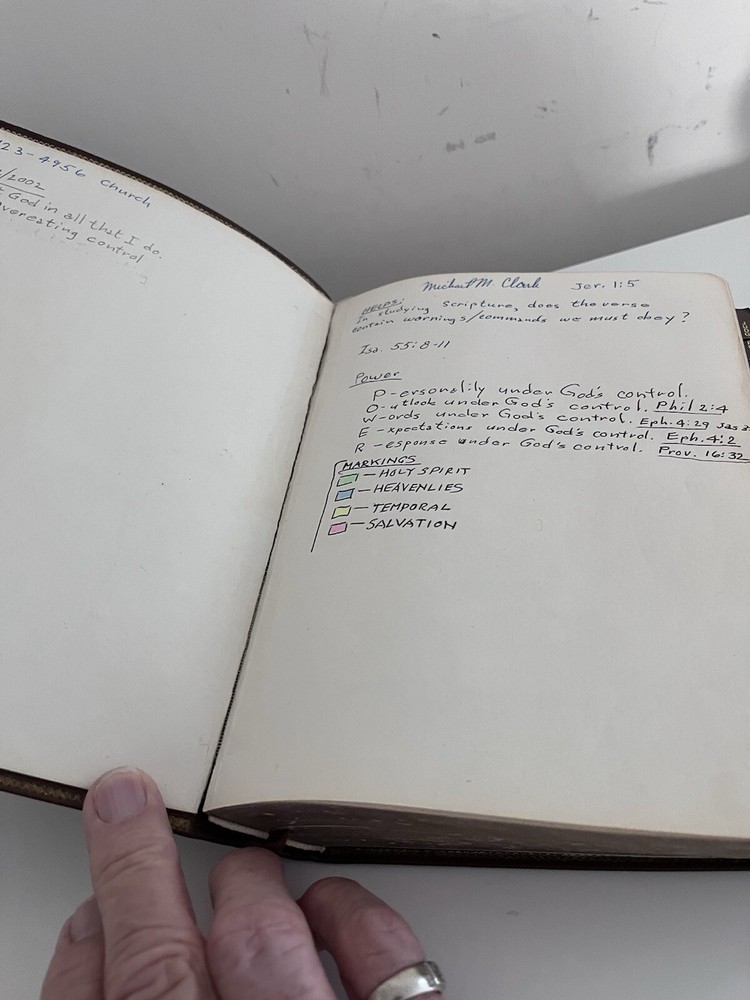 23-4956 Church
/2002
God in all that I do.
vereating control
Michael M. Clark Jer. 1:5
HELPS:
In studying scripture, does the verse
contain warnings/commands we must obey?
Isa. 55:8-11
Power
P-ersonality under God's control.
O-utlook under God's control. Phil 2:4
W-ords under God's control. Eph. 4:29 Jas 3:
E-xpectations under God's control. Eph. 4:2
R-esponse under God's control. Prov. 16:32
MARKINGS
— HOLY SPIRIT
— HEAVENLIES
— TEMPORAL
— SALVATION